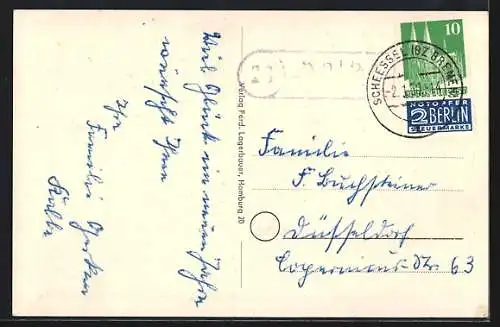 Viel Glück im neuen Jahre
wünscht Ihnen
Ihre
Familie
Verlag Ferd. Lagerbauer, Hamburg 20
10
SCHEESSEL (BZ BREMEN)
NOTOPFER
2 BERLIN
STEUERMARKE
Familie
F. Buchsteiner
Düsseldorf
Copernicus-Str. 63